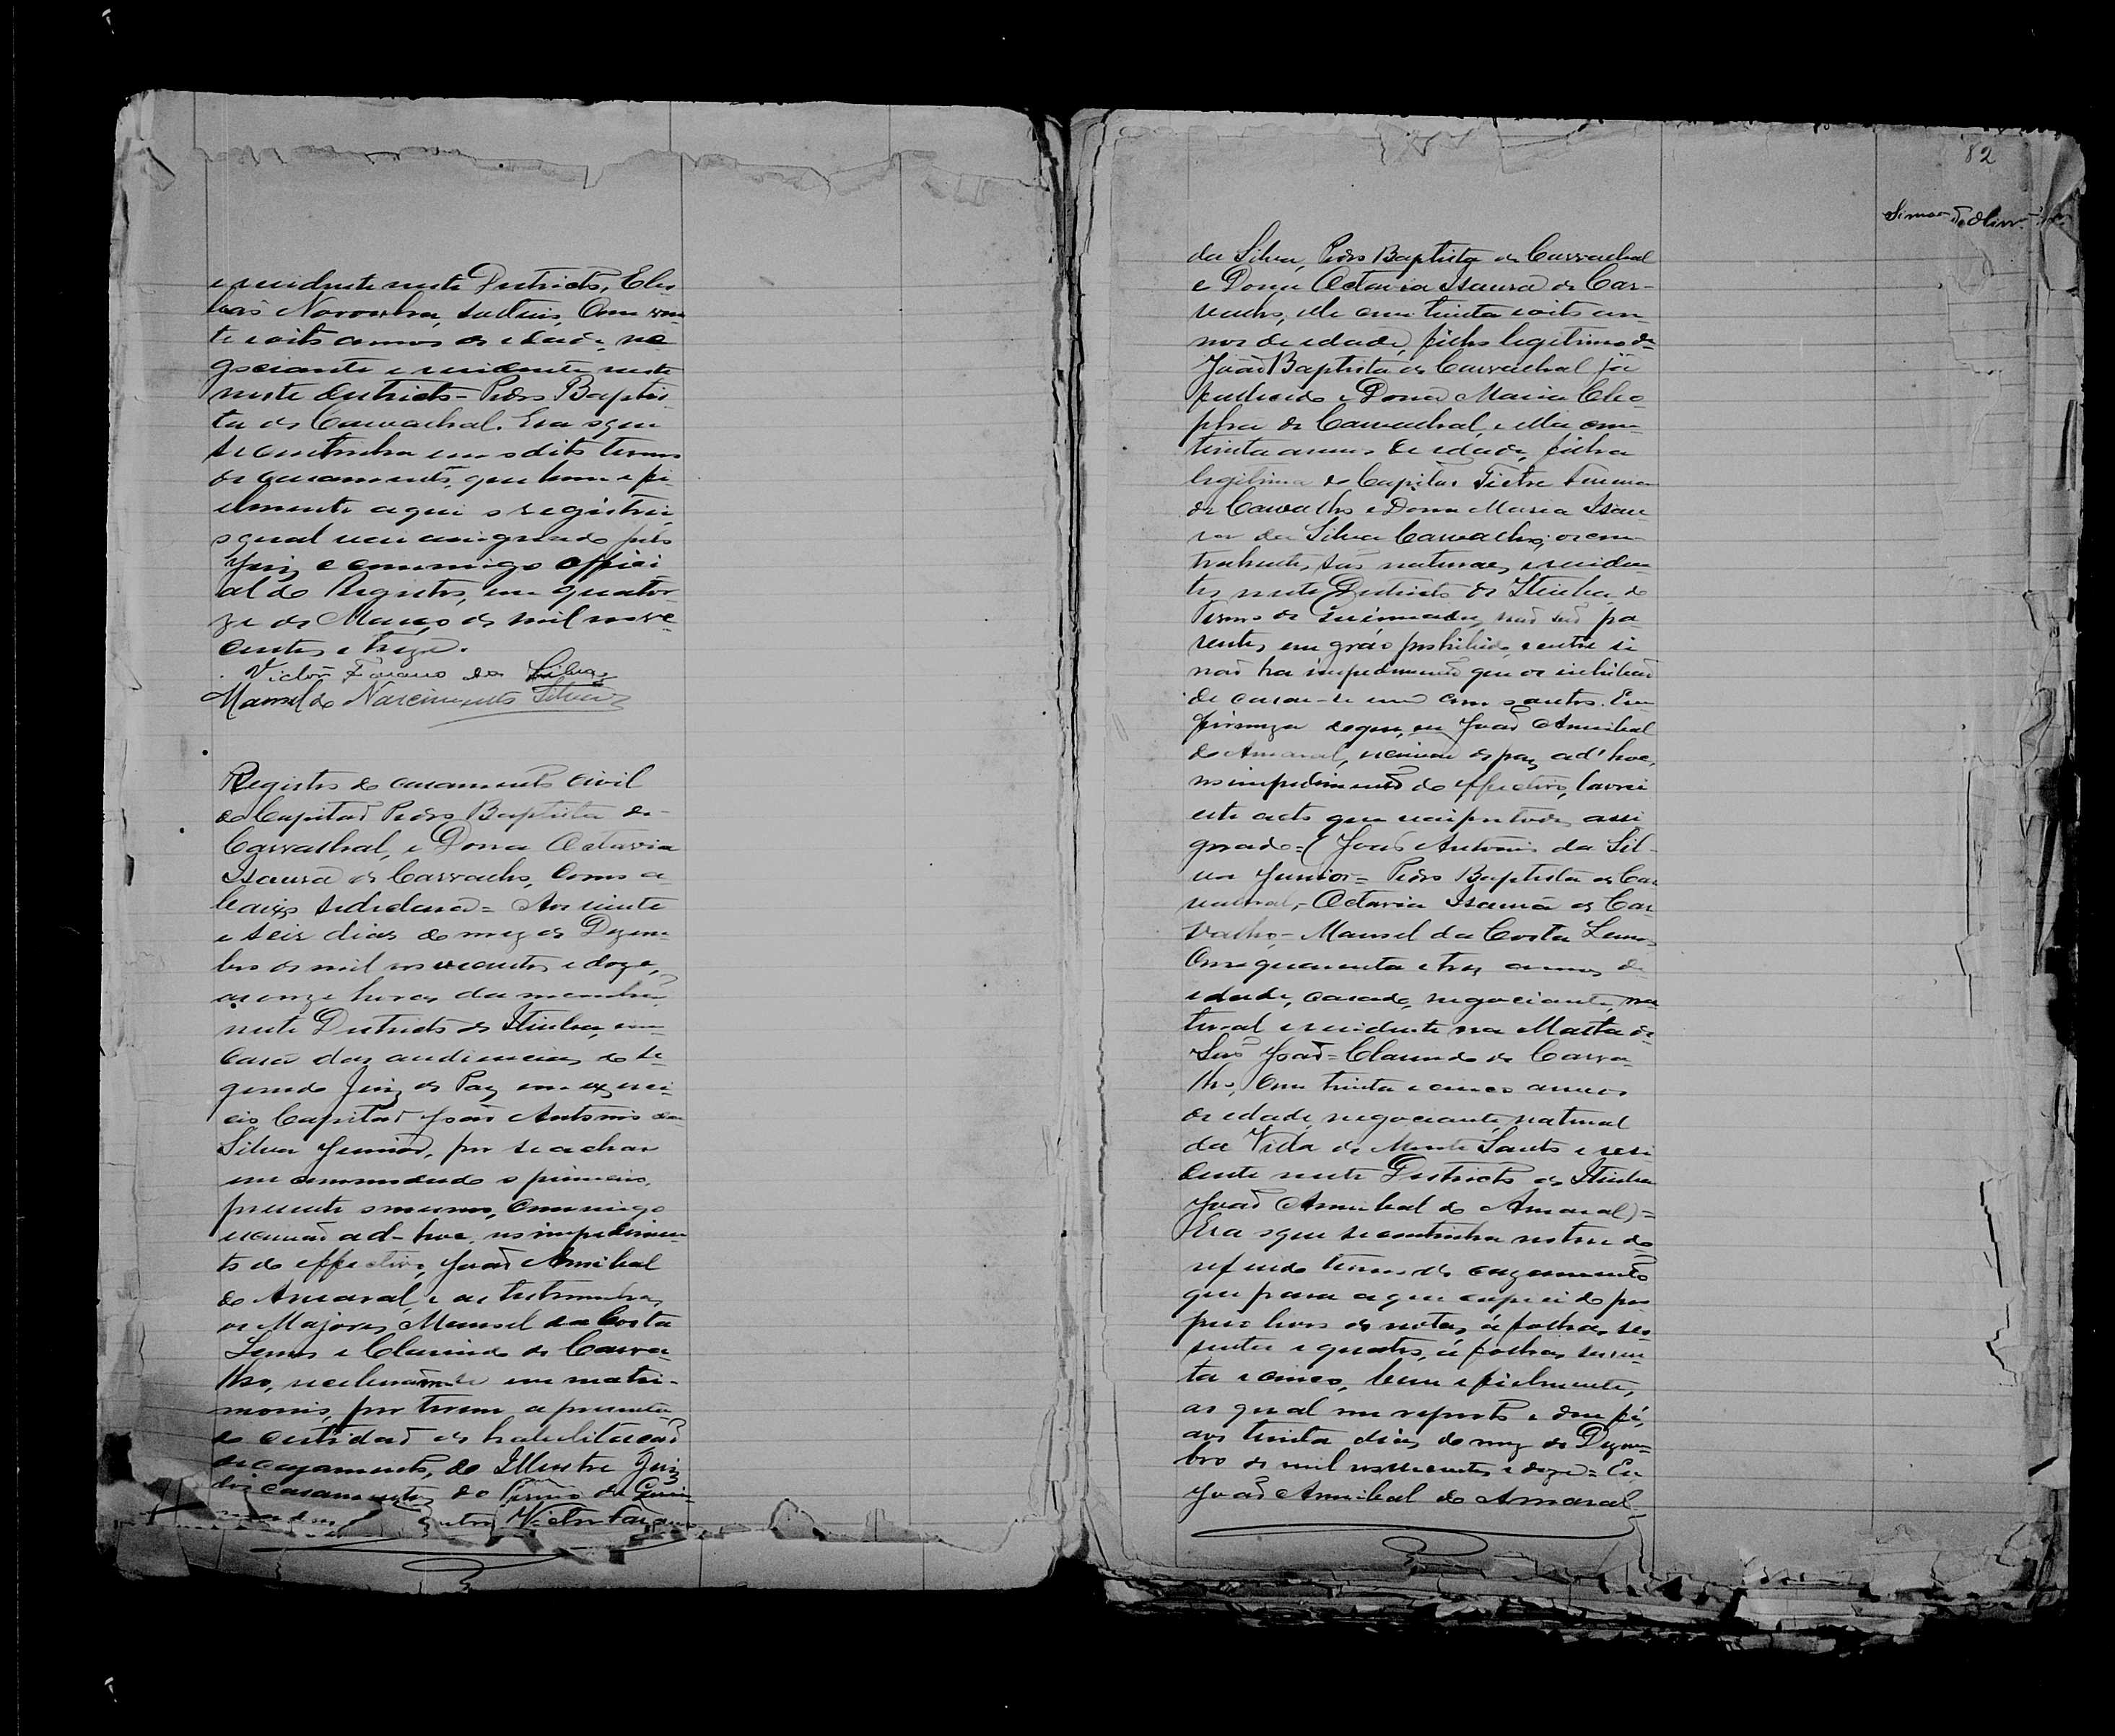 e residente neste Districto, Eles
bão Noronha, solteiro, com vin
te e oito annos de idade, ne
gociante e residente neste
neste districto - Pedro Baptis
ta de Carvalhal. Era o que
se continha em o dito termo
de casamento, que bem e fi
elmente aqui o registrei,
o qual vai assignado pelo
Juiz e commigo offici
al do Registro, em quator
ze de Março de mil nove
centos e treze.
Victor Fasano da Silva
Manoel do Nascimento Silva
Registro do casamento civil
do Capitaõ Pedro Baptista de
Carvalhal, e Dona Octavia
Isaura de Carvalho, como a
baixo se declara = Aos vinte
e seis dias do mez de Dezem
bro de mil novecentos e doze,
as onze horas da manhã,
neste Districto de Itiuba, em
casa das audiencias do Se
gundo Juiz de Paz em exerci
cio Capitaõ Joaõ Antonio da
Silva Junior, por se achar
incommodado o primeiro,
presente o mesmo, commigo
escrivaõ ad-hoc, no impedimen
to do effectivo, Joaõ Annibal
do Amaral, e as testemunhas,
os Majores Manoel da Costa
Lemos e Clarindo de Carva
lho, receberaõ-se em matri-
monio, por terem apresenta
do certidaõ de habilitaçaõ
de cazamento, do Illustre Juiz
dos casamentos do Termo de Quei
Victor Fasano
82
da Silva, Pedro Baptista de Carvalhal
e Dona Octavia Isaura de Car-
valho, elle com trinta e oito an
nos de idade, filho legitimo de
Joaõ Baptista de Carvalhal já
fallecido e Dona Maria Cleo
pha de Carvalhal, e ella com
trinta annos de idade, filha
legitima do Capitaõ
de Carvalho e Dona Maria Isau
ra da Silva Carvalho; os con
trahentes saõ naturaes e residen
tes neste Districto de Itiuba, do
Termo de Queimadas, naõ saõ pa
rentes em gráo prohibido, e entre si
naõ ha impedimento que os inhibaõ
de casar-se um com o outro. Em
firmeza do que, eu Joaõ Annibal
do Amaral, escrivaõ de paz ad'hoc,
no impedimento do effectivo, lavrei
este acto que vai por todos assi
gnado = (Joaõ Antonio da Sil-
va Junior = Pedro Baptista de Car
valhal, - Octavia Isaura de Car
valho - Manoel da Costa Lemos
Com quarenta e tres annos de
idade, casado, negociante, na
tural e residente na Matta de
Saõ Joaõ = Clarindo de Carva
lho, com trinta e cinco annos
de idade, negociante, natural
da Villa de Monte Santo e resi
dente neste Districto de Itiuba
Joaõ Annibal do Amaral) =
Era o que se continha no theor do
referido termo de cazamento
que para aqui copiei do pro
prio livro de notas, á folhas ses
senta e quatro, á folhas sessen
ta e cinco, bem e fielmente,
ao qual me reporto e dou fé,
aos trinta dias do mez de Dezem
bro de mil novecentos e doze = Eu
Joaõ Annibal do Amaral